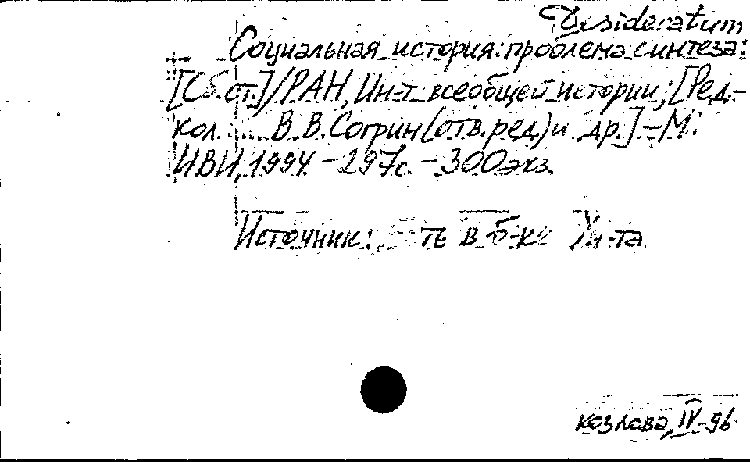 Desideratum
Социальная история: проблема синтеза:
[Сб.ст.]/РАН, Ин-т всеобщей истории; [Ред-
кол.: ... В.В.Согрин (отв.ред) и др.] - М:
ИВИ, 1994. - 297с. - 300экз.
Источник: в б-ке Ин-та
Козлова, IV-96